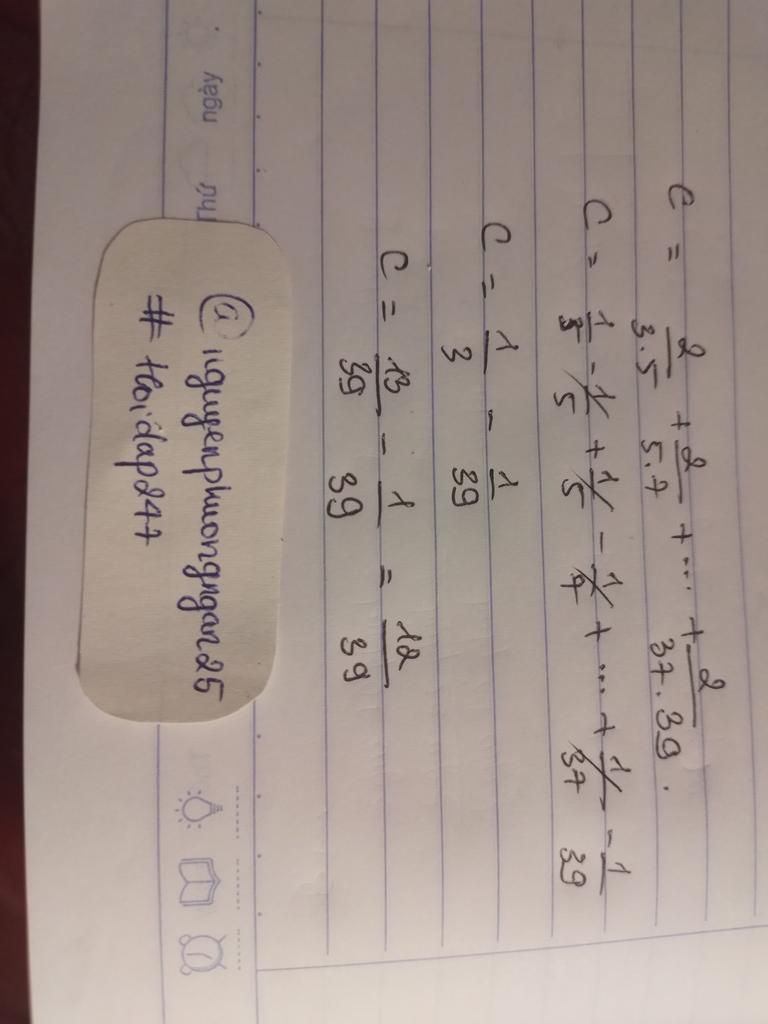 C = 2/3.5 + 2/5.7 + ... + 2/37.39.
C = 1/3 - 1/5 + 1/5 - 1/7 + ... + 1/37 - 1/39
C = 1/3 - 1/39
C = 13/39 - 1/39 = 12/39
ngày
@nguyenphuongngan25
# Hoidap247